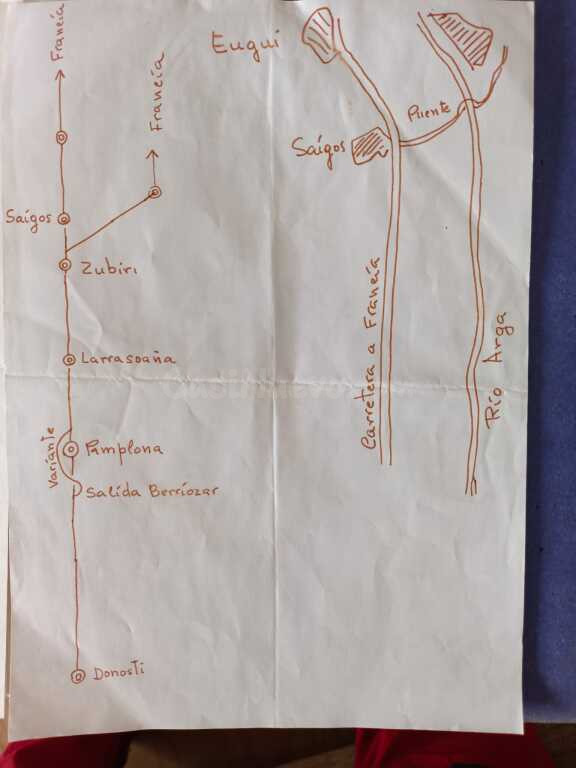 Francía
Francía
Saígos
Zubiri
Larrasoaña
Variante
Pamplona
Salida Berriozar
Donosti
Eugui
Puente
Saígos
Carretera a Francía
Río Arga